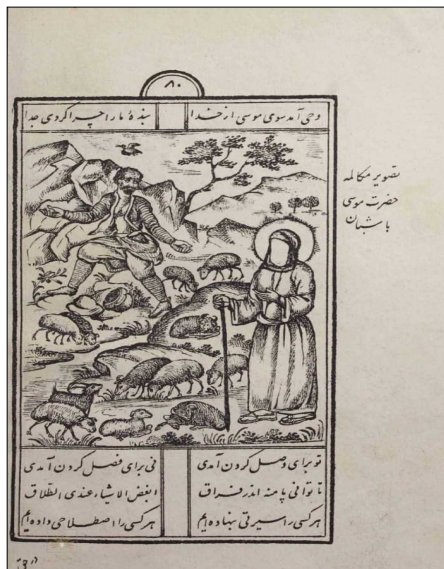 ۸۰
وحی آمد سوی موسی از خدا بندهٔ ما را چرا کردی جدا
تصویر مکالمه
حضرت موسی
با شبان
تو برای وصل کردن آمدی نی برای فصل کردن آمدی
تا توانی پا منه اندر فراق ابغض الاشیاء عندی الطلاق
هر کسی را سیرتی بنهاده‌ایم هر کسی را اصطلاحی داده‌ایم